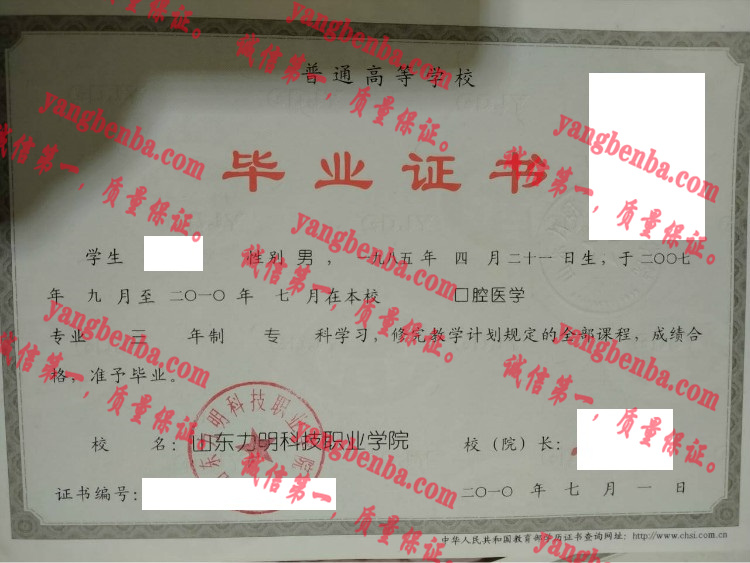 普通高等学校
毕业证书
学生 性别 男 ，一九八五年 四 月二十一日生，于二〇〇七
年 九 月至 二〇一〇 年 七 月在本校 口腔医学
专业 三 年制 专 科学习，修完教学计划规定的全部课程，成绩合
格，准予毕业。
校 名：山东力明科技职业学院 校（院）长：
证书编号： 二〇一〇 年 七 月 一 日
中华人民共和国教育部学历证书查询网址：http://www.chsi.com.cn
山东力明科技职业学院
yangbenba.com
诚信第一，质量保证。
yangbenba.com
诚信第一，质量保证。
yangbenba.com
诚信第一，质量保证。
yangbenba.com
诚信第一，质量保证。
yangbenba.com
诚信第一，质量保证。
yangbenba.com
诚信第一，质量保证。
yangbenba.com
诚信第一，质量保证。
yangbenba.com
诚信第一，质量保证。